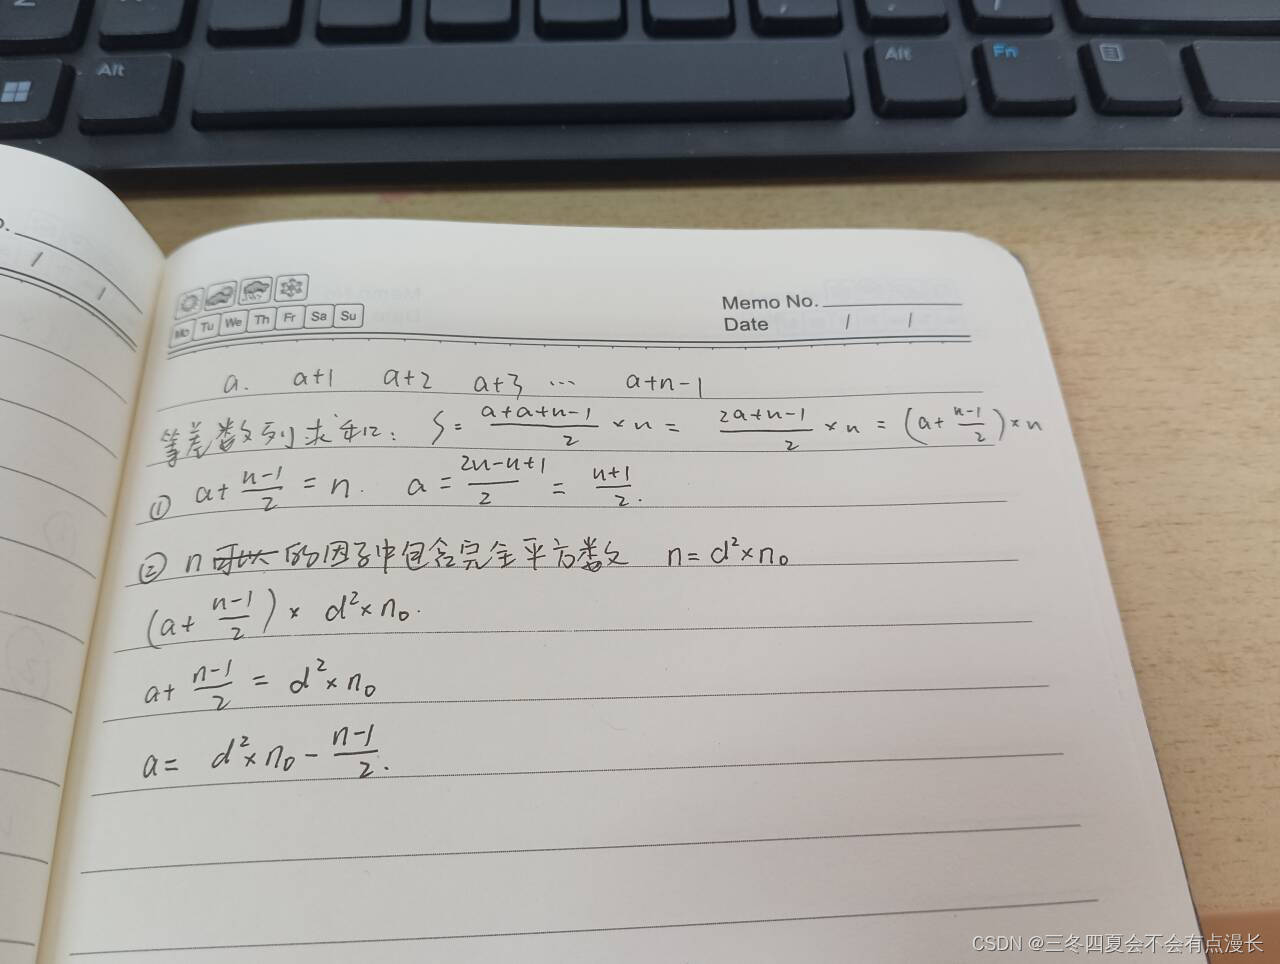 Alt
Alt
Fn
Memo No.
Date / /
Mo Tu We Th Fr Sa Su
a. a+1 a+2 a+3 … a+n-1
等差数列求和: S = \frac{a+a+n-1}{2} × n = \frac{2a+n-1}{2} × n = (a + \frac{n-1}{2}) × n
① a + \frac{n-1}{2} = n. a = \frac{2n-n+1}{2} = \frac{n+1}{2}.
② n 可以 的因子中包含完全平方数 n = d² × n₀
(a + \frac{n-1}{2}) × d² × n₀.
a + \frac{n-1}{2} = d² × n₀
a = d² × n₀ - \frac{n-1}{2}.
CSDN @三冬四夏会不会有点漫长